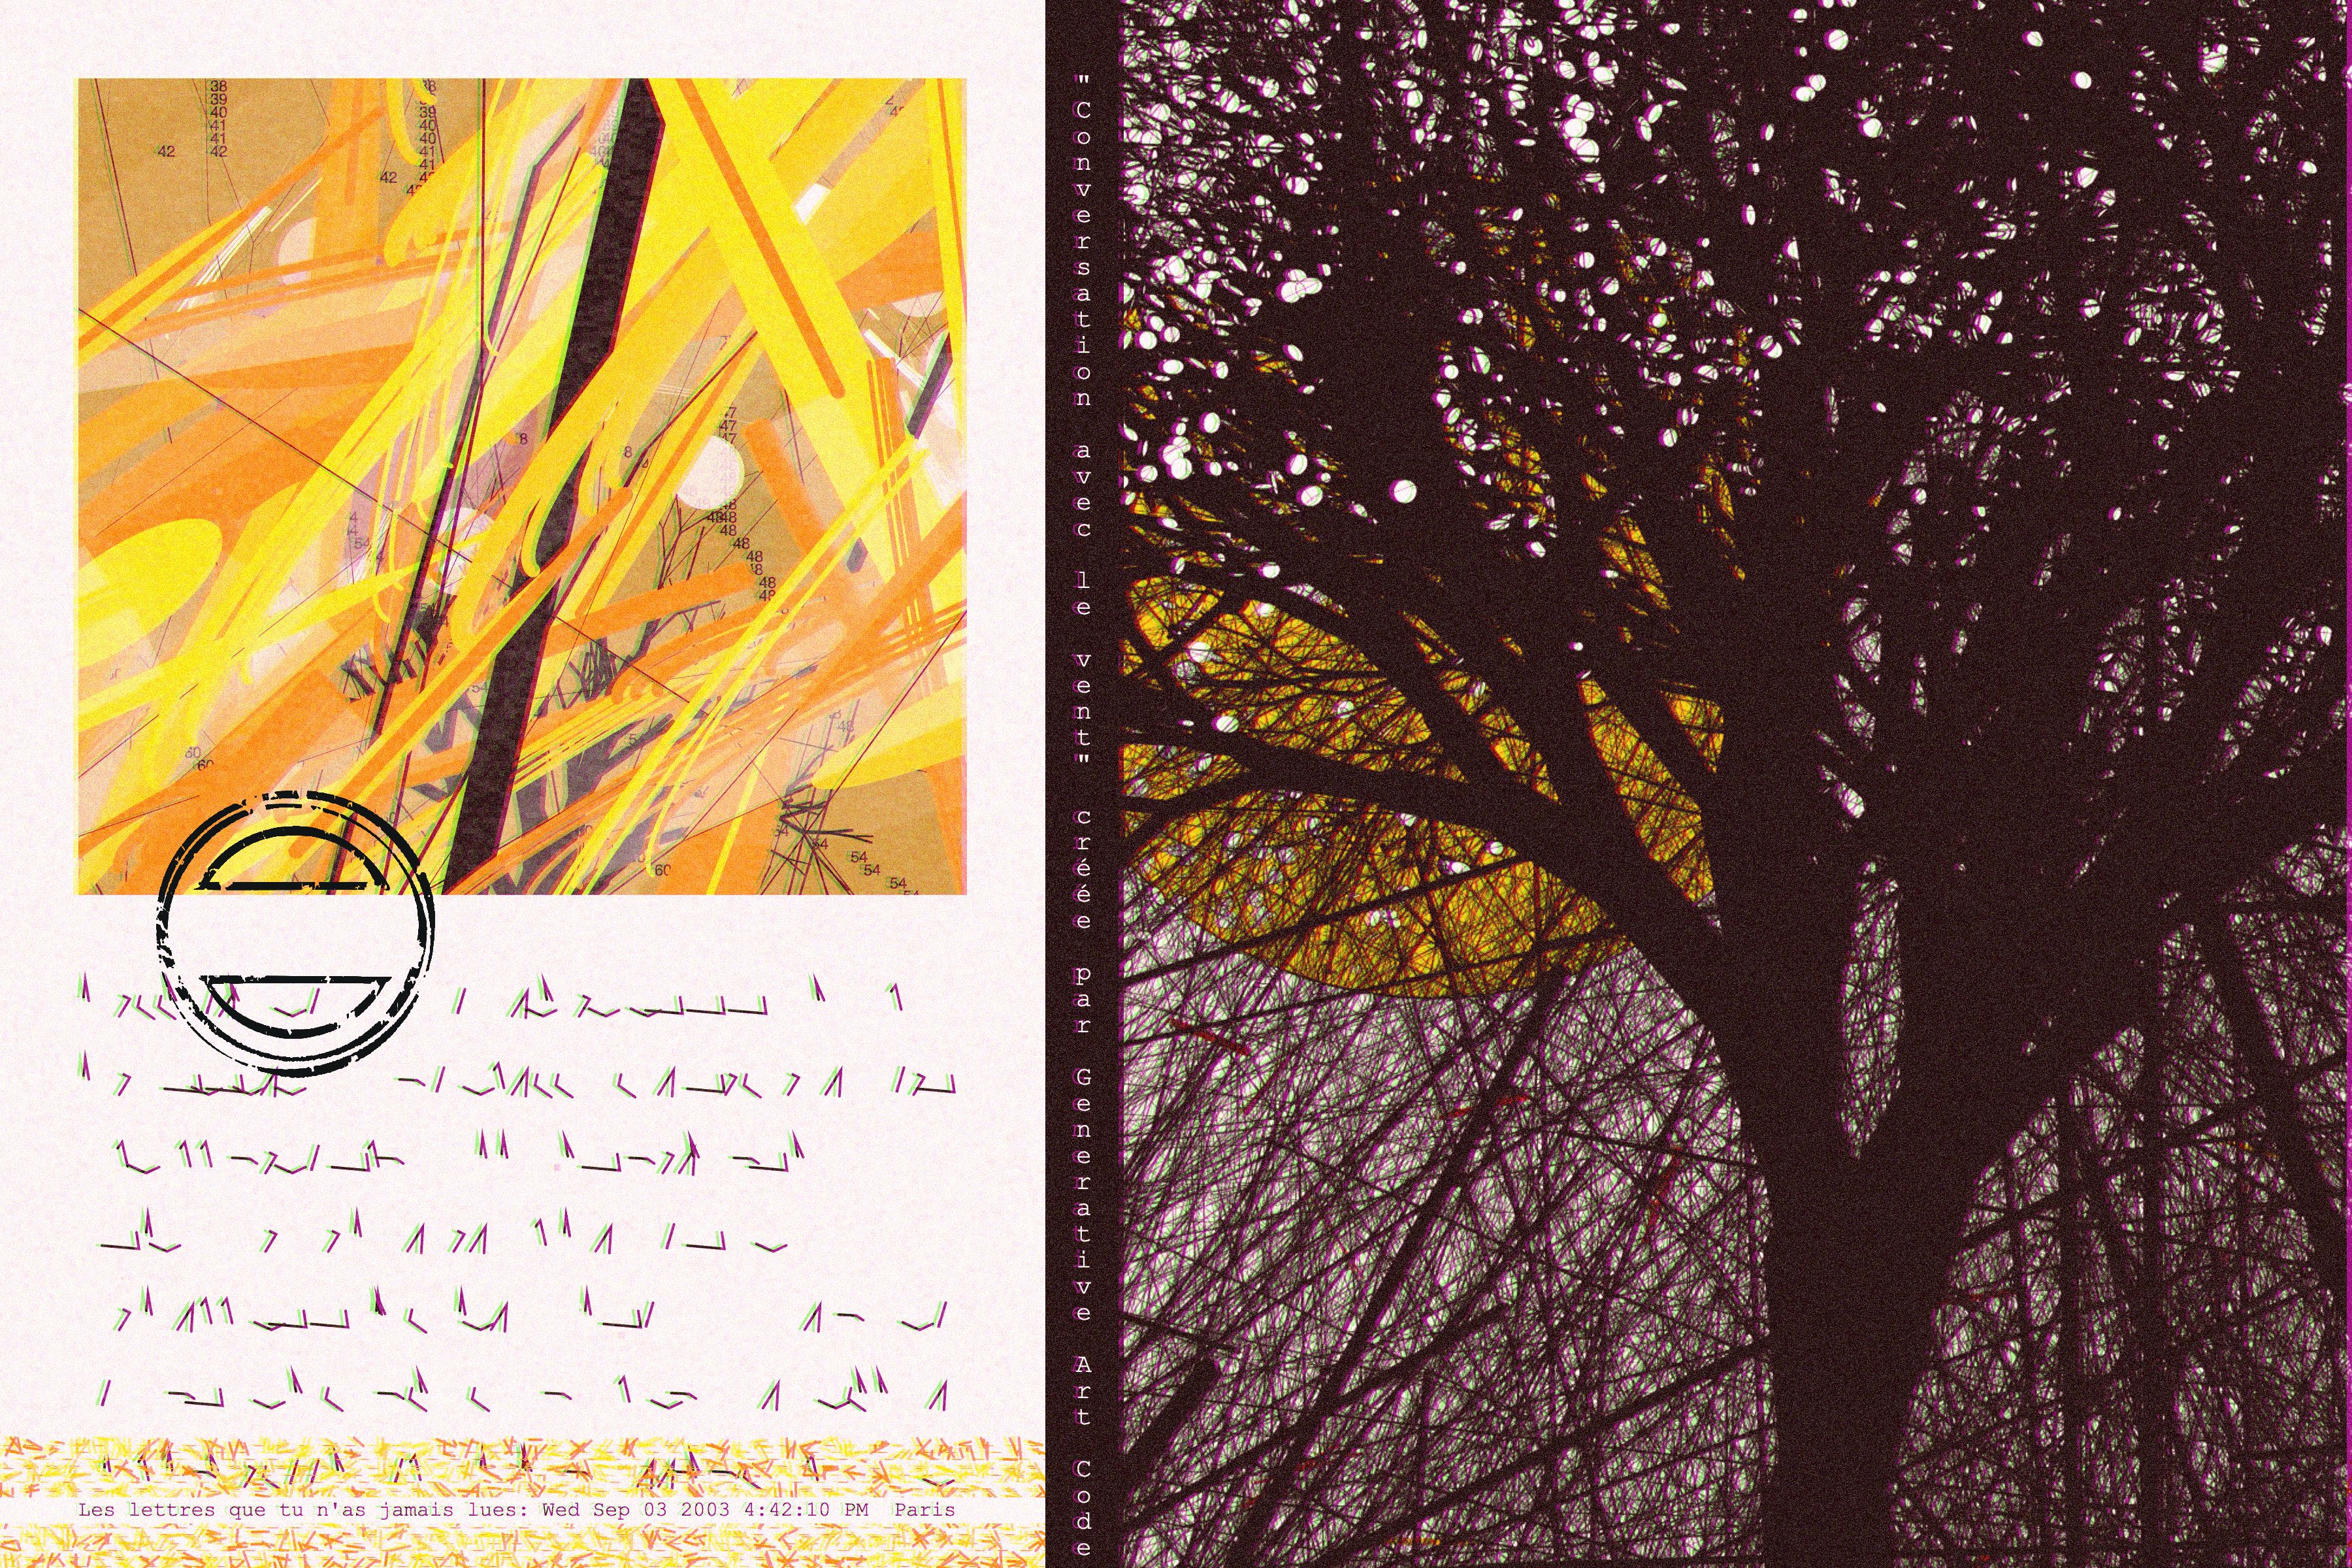 38
39
40
41
42
42
38
39
40
40
41
41
42
42
47
47
48
48
48
48
48
48
54
60
60
60
54
54
54
54
48
Les lettres que tu n'as jamais lues: Wed Sep 03 2003 4:42:10 PM Paris
"Conversation avec le vent" créée par Generative Art Code